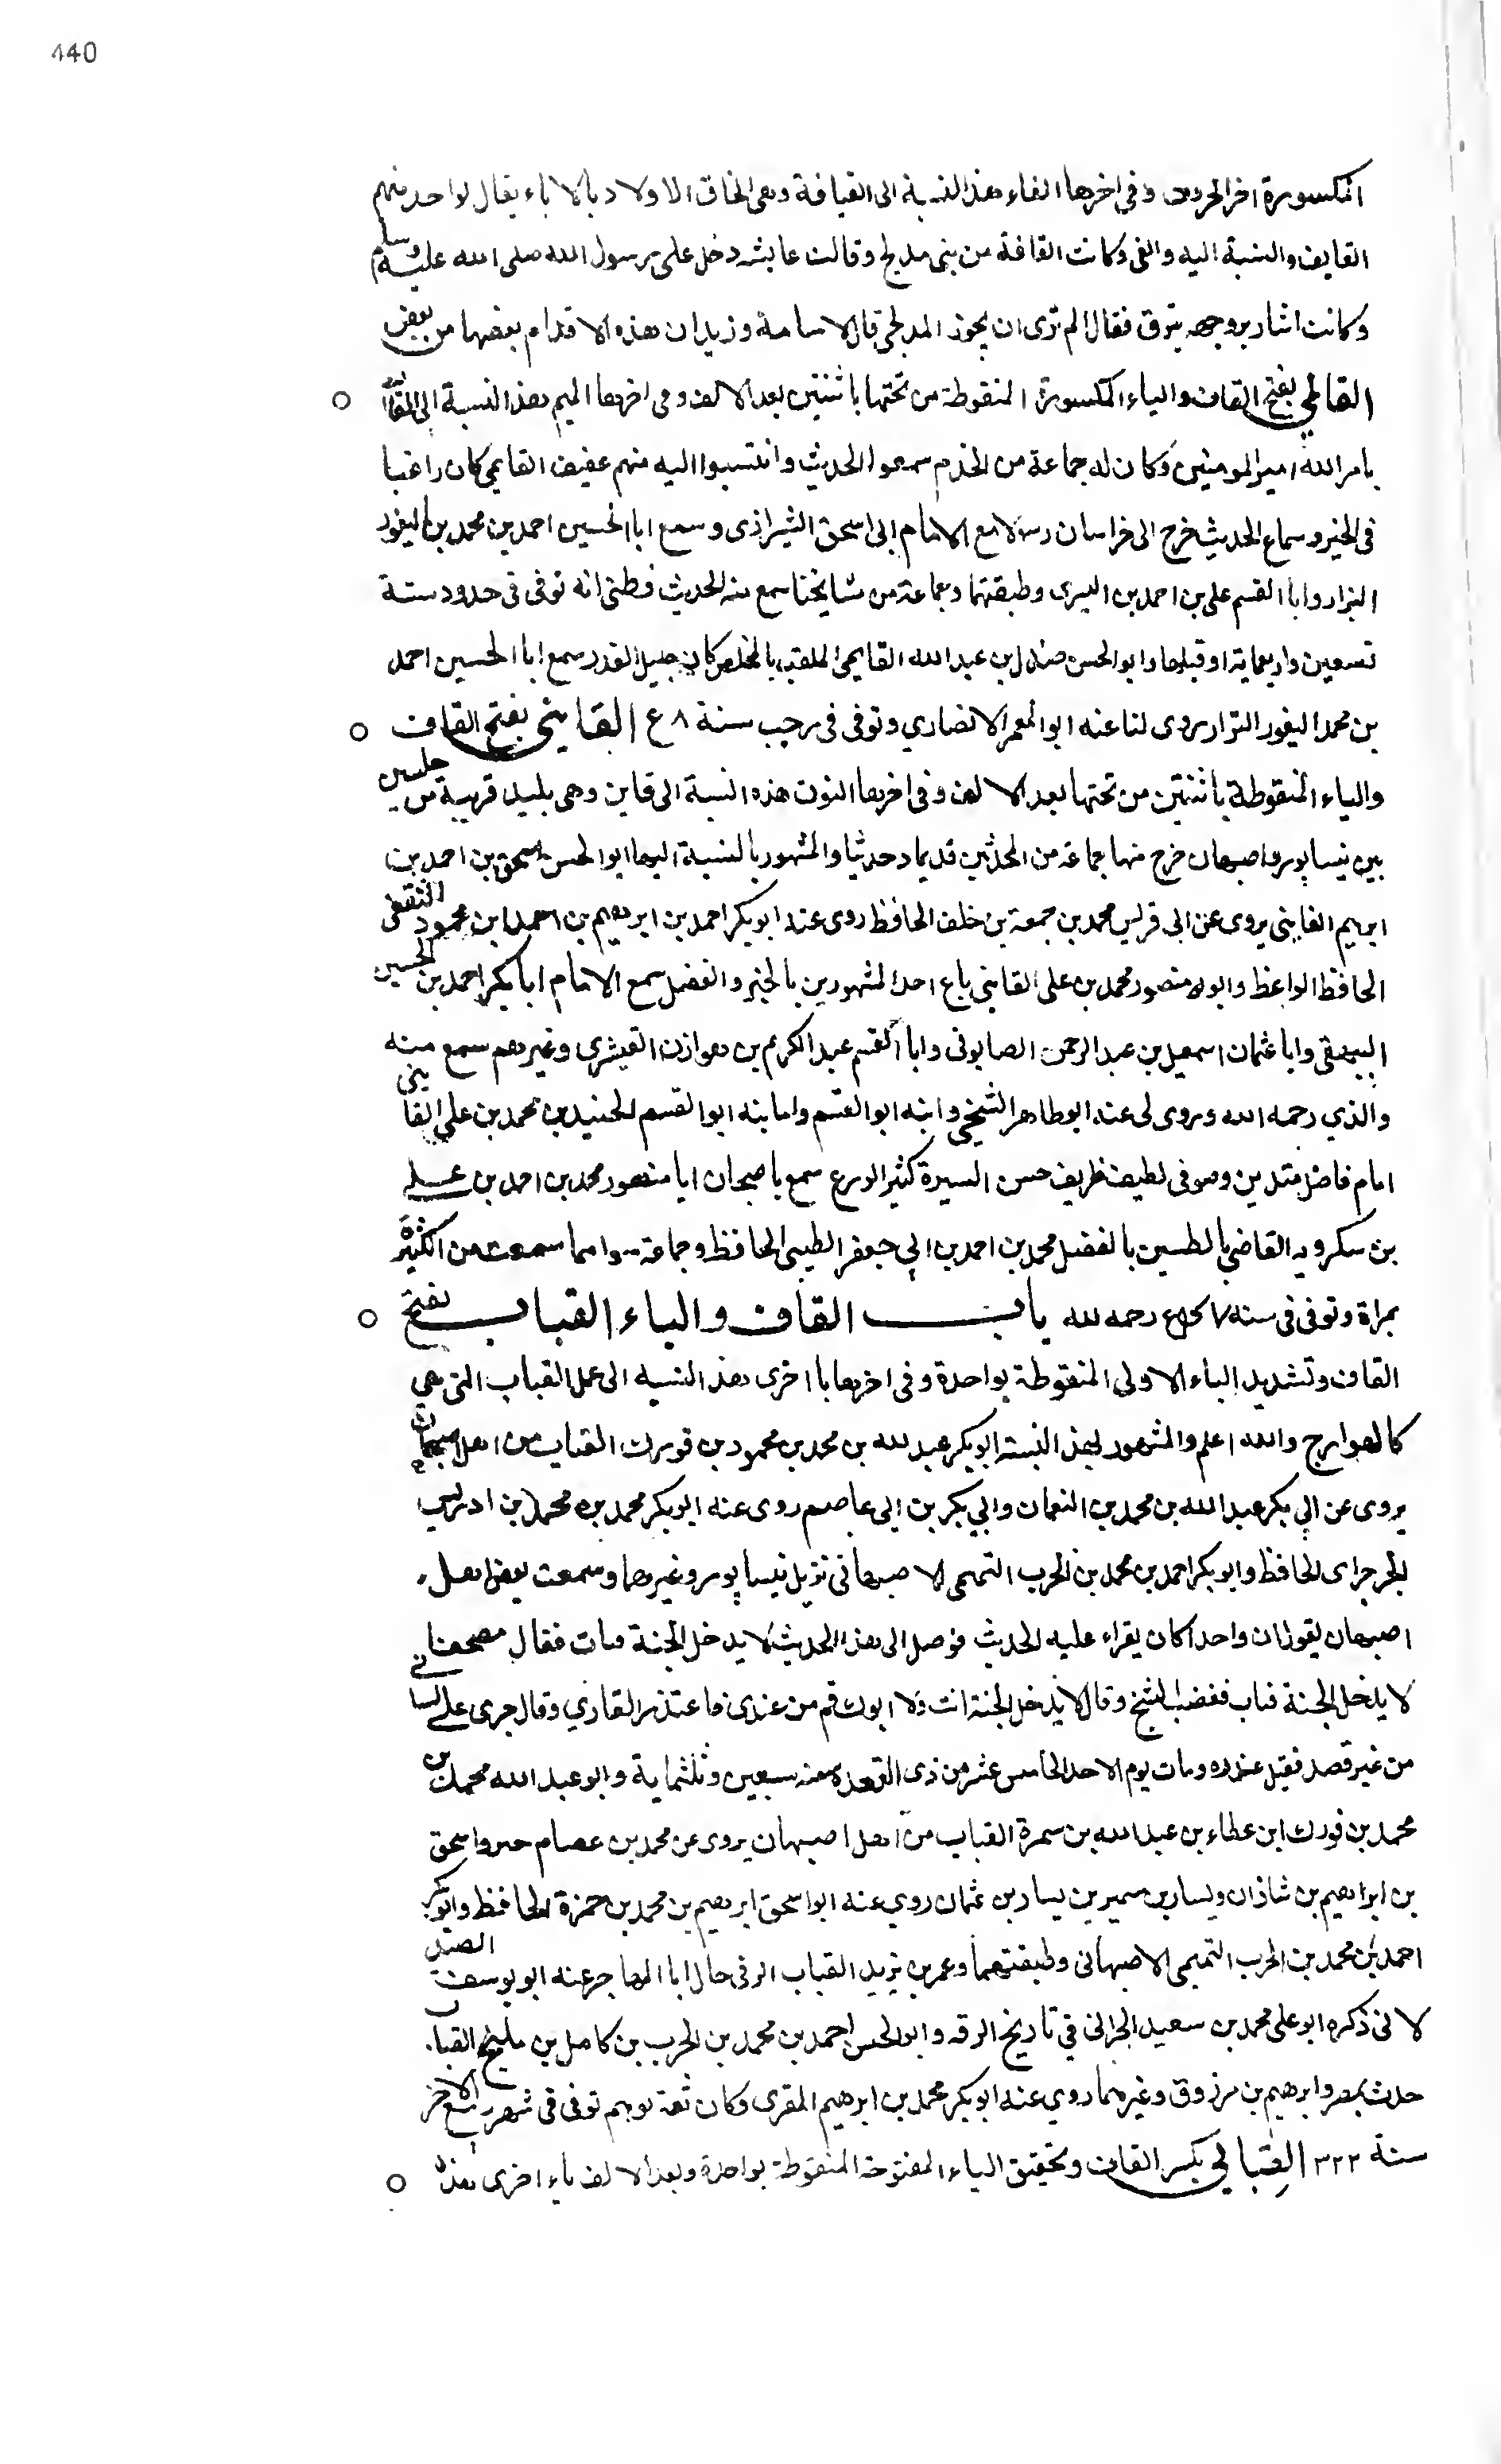 440
المكسورة اخر الحروف وفي اخرها الفاء هذه النسبة الى القيافة وهى الحاق الاولاد بالاباء يقال لواحد منهم
القايف والنسبة اليه والفى وكانت القافة من بنى مدلج وقالت عايشه دخل على رسول الله صلى الله عليه وسلم
وكانت اسارير وجهه تبرق فقال الم ترى ان مجوز المدلجى قال لاسامة وزيد ان هذه الاقدام بعضها من بعض
القايمي بفتح القاف والياء المكسورة المنقوطة من تحتها باثنتين بعد الالف وفى اخرها الميم هذه النسبة الى القايم
بامر الله امير المومنين وكان له جماعة من الخدم سمعوا الحديث وانتسبوا اليه منهم عفيف القايمي كان راغبا
فى الخير وسماع الحديث خرج الى خراسان مع الامام ابى اسحق الشيرازى وسمع ابا الحسين احمد بن محمد بن النقور
البزار وابا القسم على بن احمد بن البسرى وطبقتهما وجماعة من مشايخنا سمع منه الحديث وظنى انه توفى فى حدود سنة
تسعين واربعماية او قبلها وابو الحسن صندل بن عبد الله القايمى الملقب بالمخلص كان جليل القدر سمع ابا الحسين احمد
بن محمد النقور البزار روى لنا عنه ابو المعمر الانصاري وتوفى فى رجب سنة القايني بفتح القاف
والياء المنقوطة باثنتين من تحتها بعد الالف وفى اخرها النون هذه النسبة الى قاين وهى بليدة قريبة من طبسين
بين نيسابور واصبهان خرج منها جماعة من المحدثين قديما وحديثا والمشهور بالنسبة اليها ابو الحسن اسحق بن احمد بن
ابرهيم القاينى يروى عن ابى قريش محمد بن جمعة بن خلف الحافظ روى عنه ابو بكر احمد بن ابرهيم بن احمد ابن محمود الثقفى
الحافظ الواعظ وابو منصور محمد بن على القاينى باع احد المشهورين بالخير والفضل سمع الامام ابا بكر احمد بن الحسين
البيهقى وابا عثمان اسمعيل بن عبد الرحمن الصابونى وابا القسم عبد الكريم بن هوازن القشيرى وغيرهم سمع منه
والدي رحمه الله وروى لى عنه ابو طاهر السنجى وابنه ابو القسم واما بنه ابو القسم الجنيد بن محمد بن على القاينى
امام فاضل متدين وصوفى لطيف ظريف حسن السيرة كثير الورع سمع باصبهان ابا منصور محمد بن احمد بن على
بن سكرويه القاضى بالطبسين بالفضل محمد بن احمد بن ابى جعفر الطبسى الحافظ وجماعة سواهما سمعت من الكثير
بهراة وتوفى فى سنة رحمه الله باب القاف والباء القباب بفتح
القاف وتشديد الباء الاولى المنقوطة بواحدة وفى اخرها با اخرى هذه النسبه الى عمل القباب التى هي
كالهوادج والله اعلم والمشهور بهذه النسبة ابو بكر عبد لله بن محمد بن محمود بن فورك القباب من اهل اصبهان
يروى عن ابى بكر عبد الله بن محمد بن النعمان وابي بكر بن ابى عاصم روى عنه ابو بكر محمد بن محمد بن ادريس
الجرجراى الحافظ وابو بكر احمد بن محمد بن الحرب التميمى الاصبهانى نزيل نيسابور وغيرهما وسمعت بعض اهل
اصبهان يقول ان واحدا كان يقراء عليه الحديث فوصل الى هذا الحديث لا يدخل الجنة قتات فقال مصحفا
لا يدخل الجنة قباب فغضب الشيخ وقال لا يدخل الجنة انت ولا ابوك قم من عندى فاعتذر القاري وقال جرى على لسانى
من غير قصد فقبل عذره ومات يوم الاحد الخامس عشر من ذى القعدة سنه سبعين وثلثماية وابو عبد الله محمد بن
محمد بن فورك ابن عطاء بن عبد الله بن سمرة القباب من اهل اصبهان يروى عن محمد بن عصام واسحق
بن ابراهيم بن شاذان ويسار بن سمير بن يسار بن عثمان روي عنه ابو اسحق ابرهيم بن محمد بن حمزة الحافظ وابو بكر
احمد بن محمد بن الحرب التميمى الاصبهانى وطبقتهما وعمر بن يزيد القباب الرقى خال ابا المهاجر عنه ابو يوسف الصيد
لانى ذكره ابو على محمد بن سعيد الحرانى فى تاريخ الرقه وابو الحسن احمد بن محمد بن الحرب بن كامل بن مليح القباب
حدث بمصر وابرهيم بن مرزوق وغيرهما روي عنه ابو بكر محمد بن ابرهيم المقرى وكان ثقة توفى فى شهر ربيع الاخر
سنة ٣٢٣ القبابي بكسر القاف وتخفيف الباء المفتوحة المنقوطة بواحدة وبعد الالف باء اخرى هذه